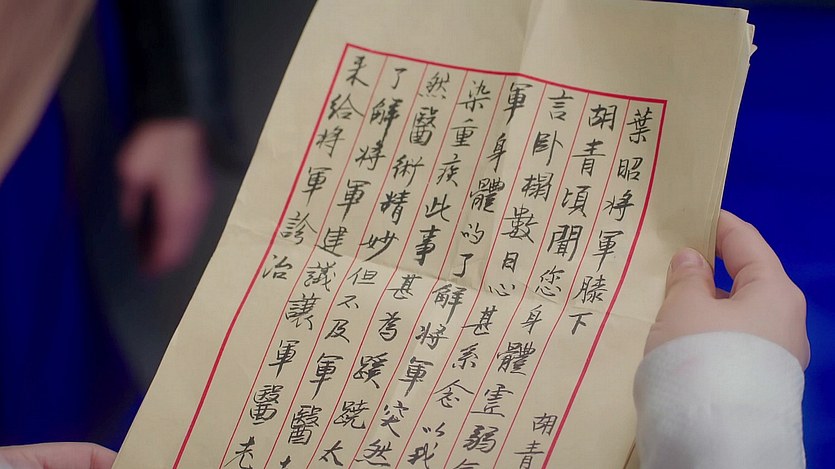 葉昭將軍膝下 胡青
胡青頃聞您身體弱
言卧榻數日心甚系念以我
軍身體的了解將軍突然
染重疾此事甚為蹊蹺太
然醫術精妙但不及軍醫
了解將軍建議讓軍醫老
来給將軍診治